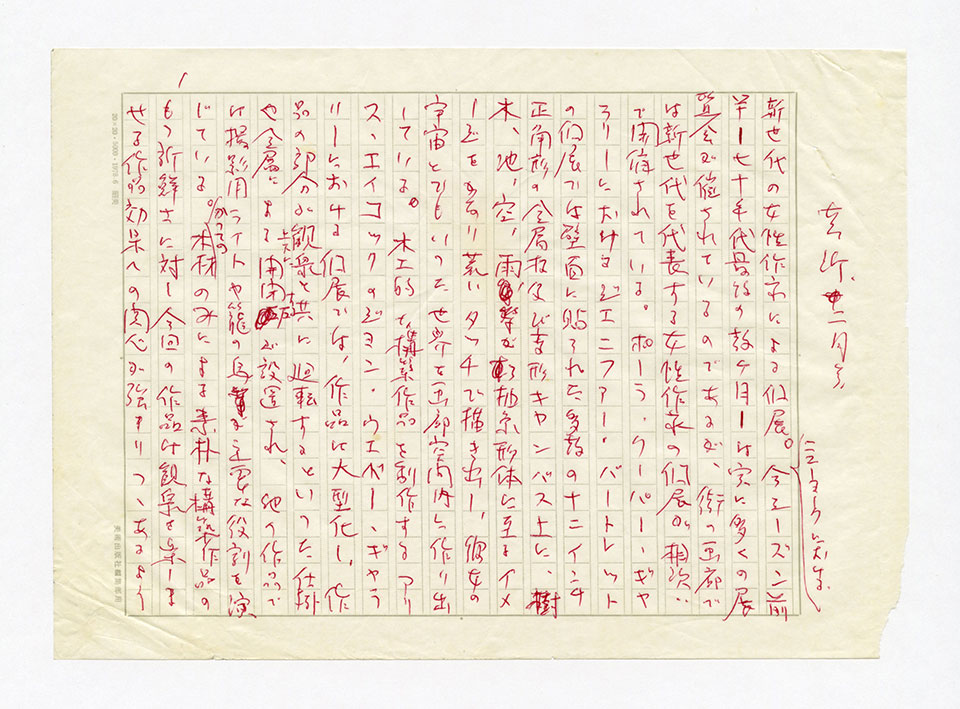 二月号
ニューヨーク
新世代の女性作家による個展。今シーズン前
半ー七十年代最後の数ヶ月ーは実に多くの展
覧会が催されているのであるが、街の画廊で
は新世代を代表する女性作家の個展が相次い
で開催されている。ポーラ・クーパー・ギャ
ラリーにおけるジェニファー・バートレット
の個展では壁面に貼られた多数の十二インチ
正角形の金属板及び方形キャンバス上に、樹
木、地、空、雨、抽象形体に至るイメ
ージをかなり荒いタッチで描き出し、彼女の
宇宙とでもいった世界を画廊空間内に作り出
している。木工的な構築作品を制作するアリ
ス・エイコックのジョン・ウエバー・ギャラ
リーにおける個展では、作品は大型化し、作
品の部分が観衆と共に廻転するといった仕掛
や金属による開閉戸が設置され、他の作品で
は撮影用ライトや籠の鳥が主要な役割を演
じている。かつての木材のみによる素朴な構築作品の
もつ新鮮さに対し今回の作品は観衆を楽しま
せる作品効果への関心が強まりつゝあるよう
20×20・5000・1978・6
美術出版社編集部用